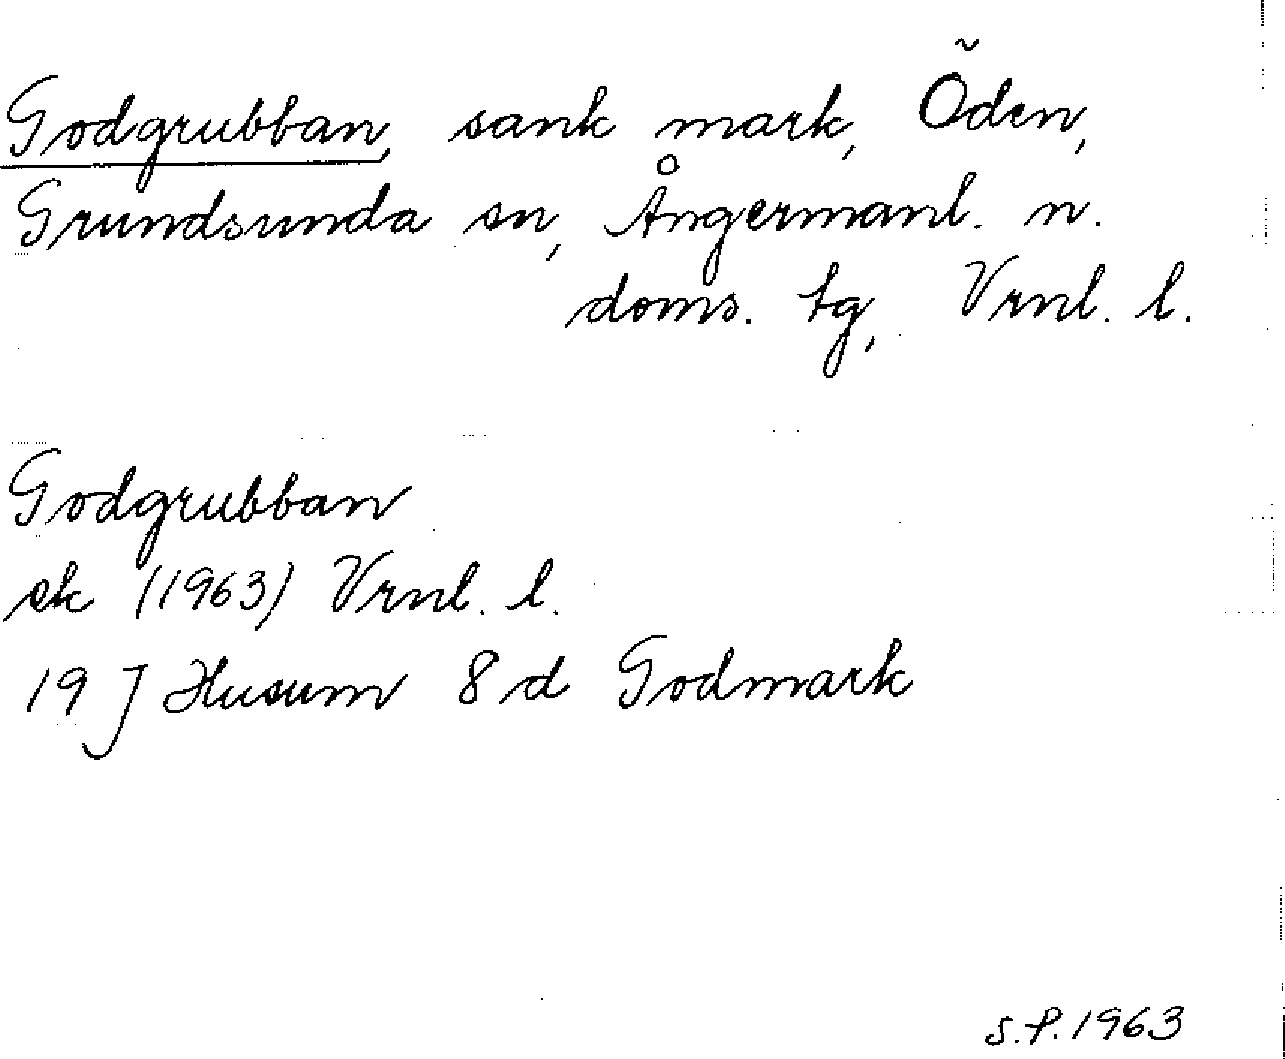 Godgrubban, sank mark, Öden,
Grundsunda sn, Ångermanl. n.
doms. tg, Vrnl. l.
Godgrubban
ek (1963) Vrnl. l.
19 J Husum 8 d Godmark
S.P. 1963